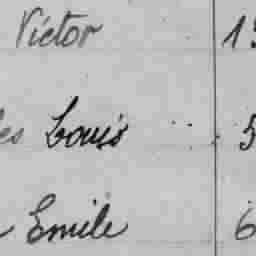 Victor 15
es Louis 5
Emile 6